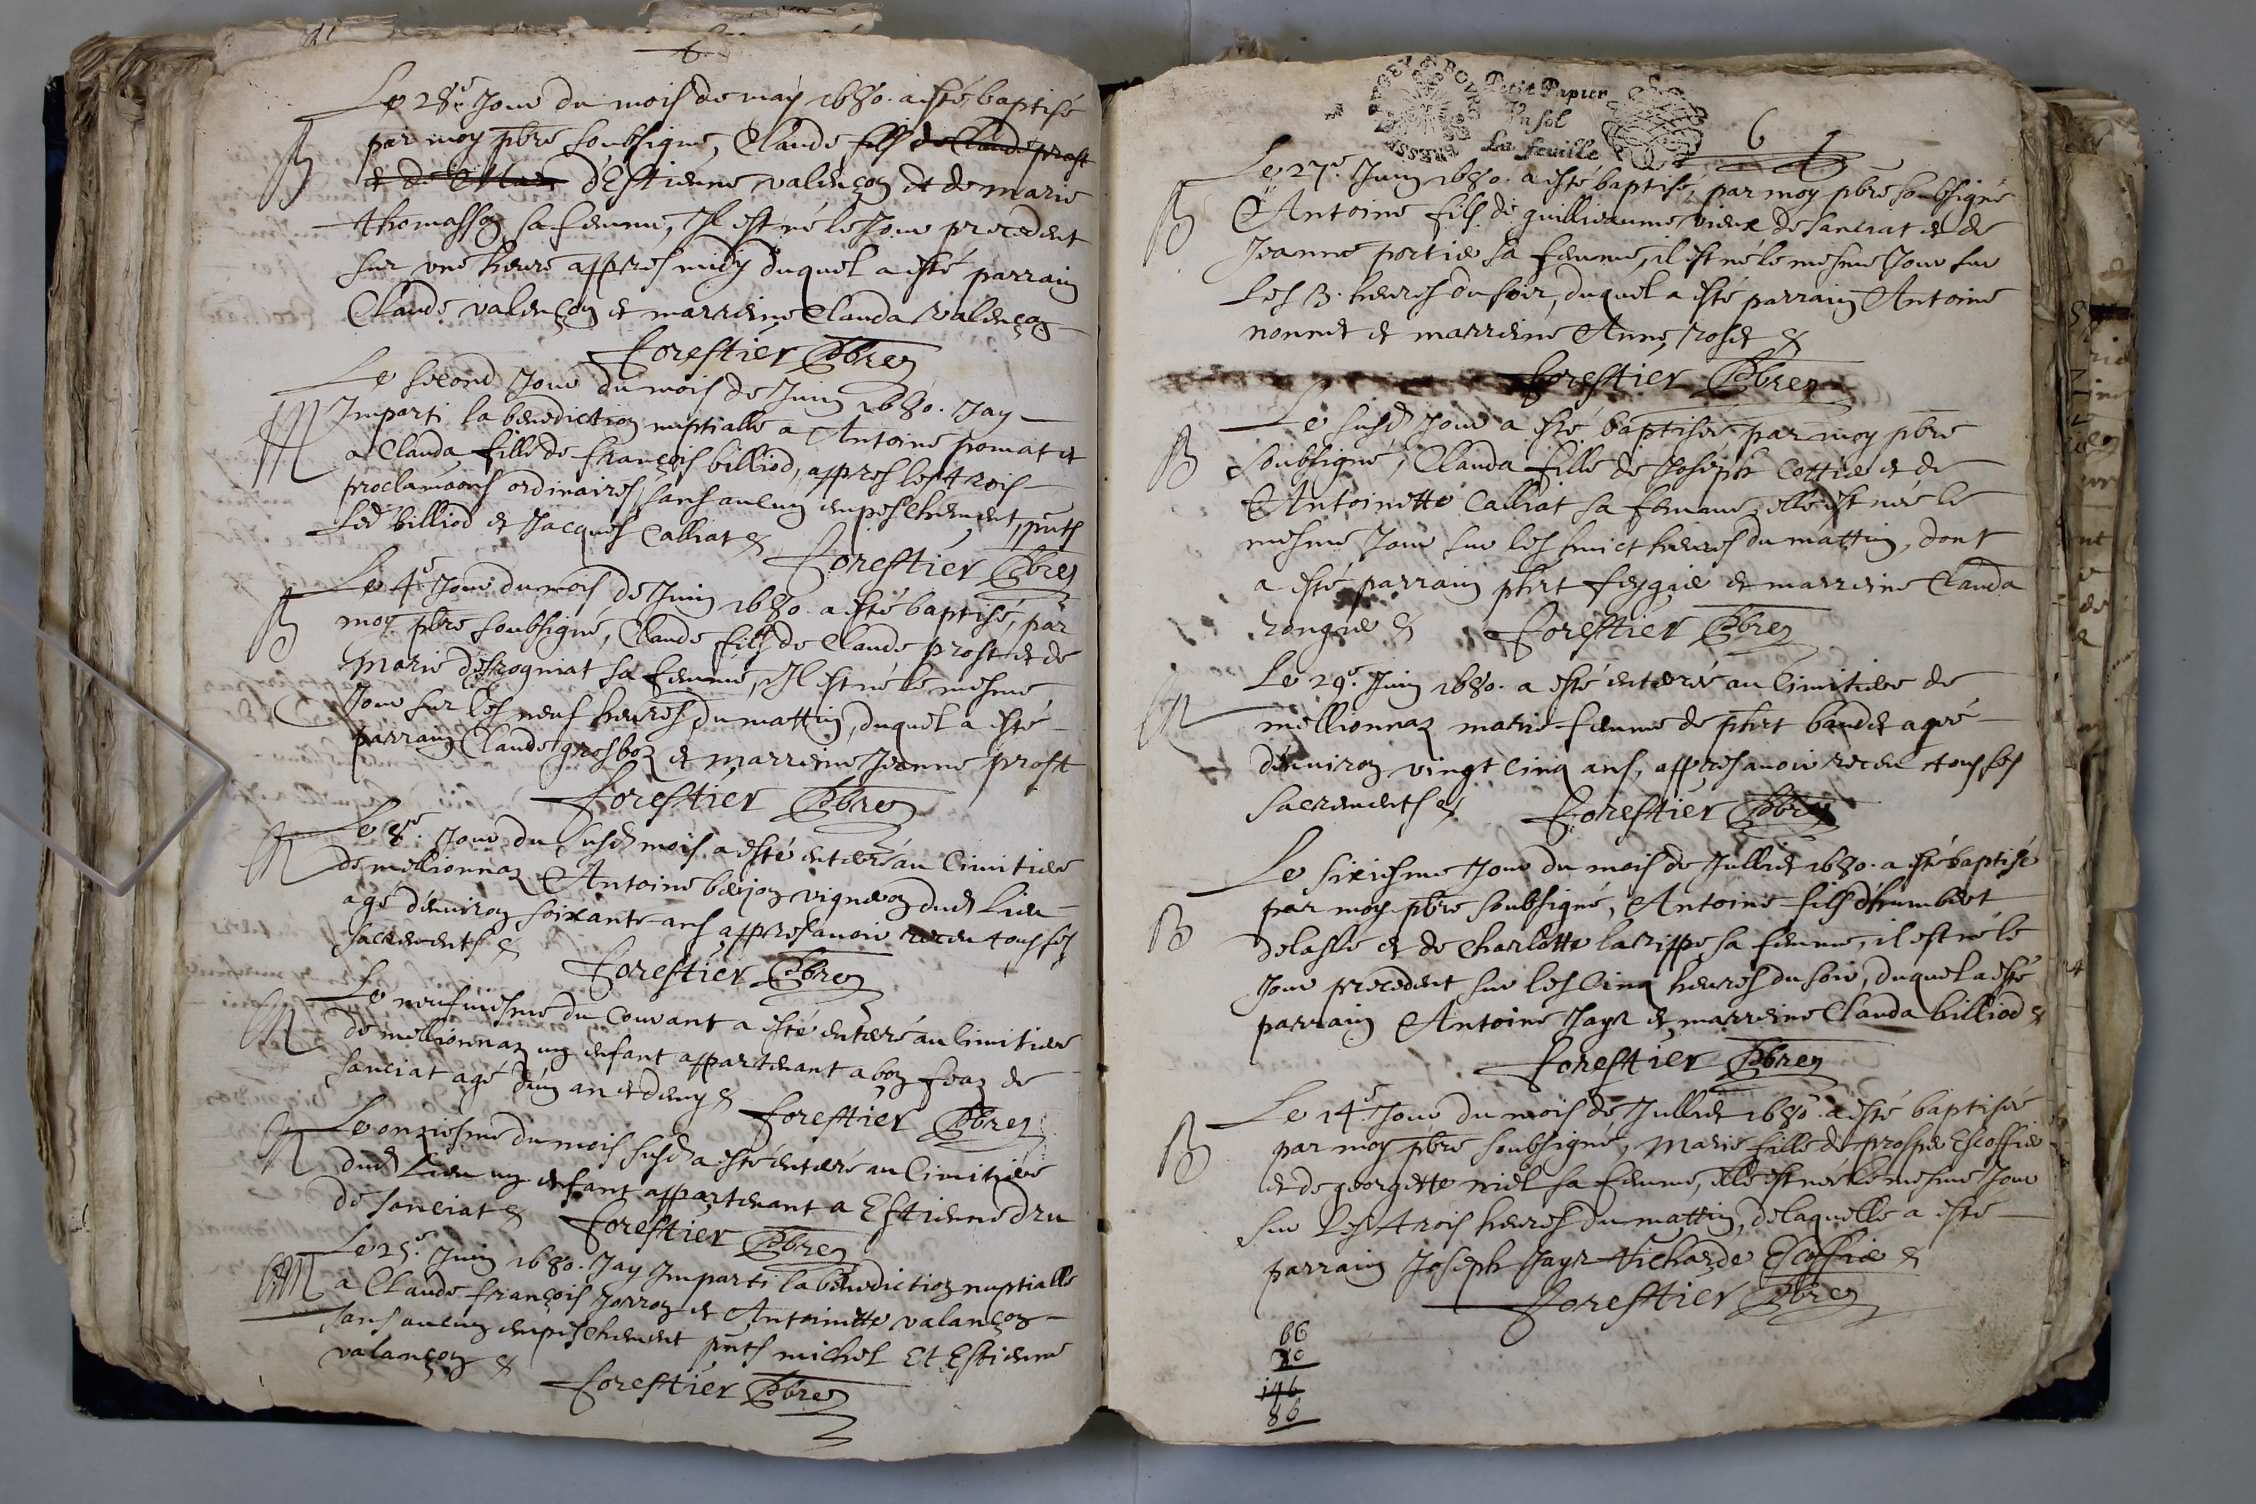 Le 28e Jour du mois de may 1680. a esté baptisé
B
par moy pbre soubsigné, Claude fils de Claude prost
et de Mar d'Estienne valençon et de marie
thomasson sa femme, Il est né le Jour precedent
sur une heure appres midy duquel a esté parrain
Claude valençon et marreine Clauda valençon
Forestier Pbre
Le second Jour du mois de Juin 1680. Jay
M
Imparti la benediction nuptialle a Antoine pomat et
a Clauda fille de françois billiod, appres les trois
proclamaons ordinaires, sans aucun empeschement, pnts
led billiod et Jacques Calliat &
Forestier Pbre
Le 4e Jour du mois de Juin 1680. a esté baptisé, par
B
moy pbre soubsigné, Claude fils de Claude prost et de
Marie desrogniat sa femme, Il est né le mesme
Jour sur les neuf heures du mattin, duquel a esté
parrain Claude grosboz et marreine Jeanne prost
Forestier Pbre
Le 8e. Jour du susd mois a esté enterré au Cimitiere
M
de mellionnaz Antoine bejon vigneron dud Lieu
agé d'environ soixante ans appres avoir receu tous ses
sacrements &
Forestier Pbre
Le neufviesme du Courant a esté enterré au Cimitiere
M
de mellionnaz un enfant appartenant a
sanciat agé d'un an et demy &
Forestier Pbre
Le onziesme du mois susd a esté enterré au Cimitiere
M
dud Lieu un enfant appartenant a Estienne dru
de sanciat &
Forestier Pbre
Le 25e. Juin 1680. Jay Imparti la benediction nuptialle
M
a Claude françois Jorron et Antoinette valançon
sans aucun empeschement pnts michel Et Estienne
valançon &
Forestier Pbre
Petit Papier
Un sol
La feuille
6
Le 27e. Juin 1680. a esté baptisé, par moy pbre soubsigné
B
Antoine fils de guillieaume vieux de sanciat et de
Jeanne portier sa femme, il est né le mesme Jour sur
Les 3. heures du soir, duquel a esté parrain Antoine
nonnet et marreine Anne, roset &
Forestier Pbre
Le susd Jour a esté baptisée, par moy pbre
B
soubsigné, Clauda fille de Joseph Cottier et de
Antoinette Calliat sa femme, elle est née le
mesme Jour sur les huict heures du mattin, dont
a esté parrain phrt feygue et marreine Clauda
rongne &
Forestier Pbre
Le 29e. Juin 1680. a esté enterrée au Cimitiere de
M
mellionnaz marie femme de phrt baudet agée
d'environ vingt cinq ans, appres avoir receu tous ses
sacrements &
Forestier Pbre
Le sixiesme Jour du mois de Julliet 1680. a esté baptisé
B
par moy pbre soubsigné, Antoine fils d'humbert
delasle et de Charlotte larippe sa femme, il est né le
Jour precedent sur les cinq heures du soir, duquel a esté
parrain Antoine Jayr et marreine Clauda billiod &
Forestier Pbre
Le 14e. Jour du mois de Julliet 1680. a esté baptisée
B
par moy pbre soubsigné, Marie fille de prosper Escoffier
et de georgette niel sa femme, elle est née le mesme Jour
sur Les trois heures du mattin, delaquelle a esté
parrain Joseph Jayr Richarde Escoffier &
Forestier Pbre
66
80
146
86